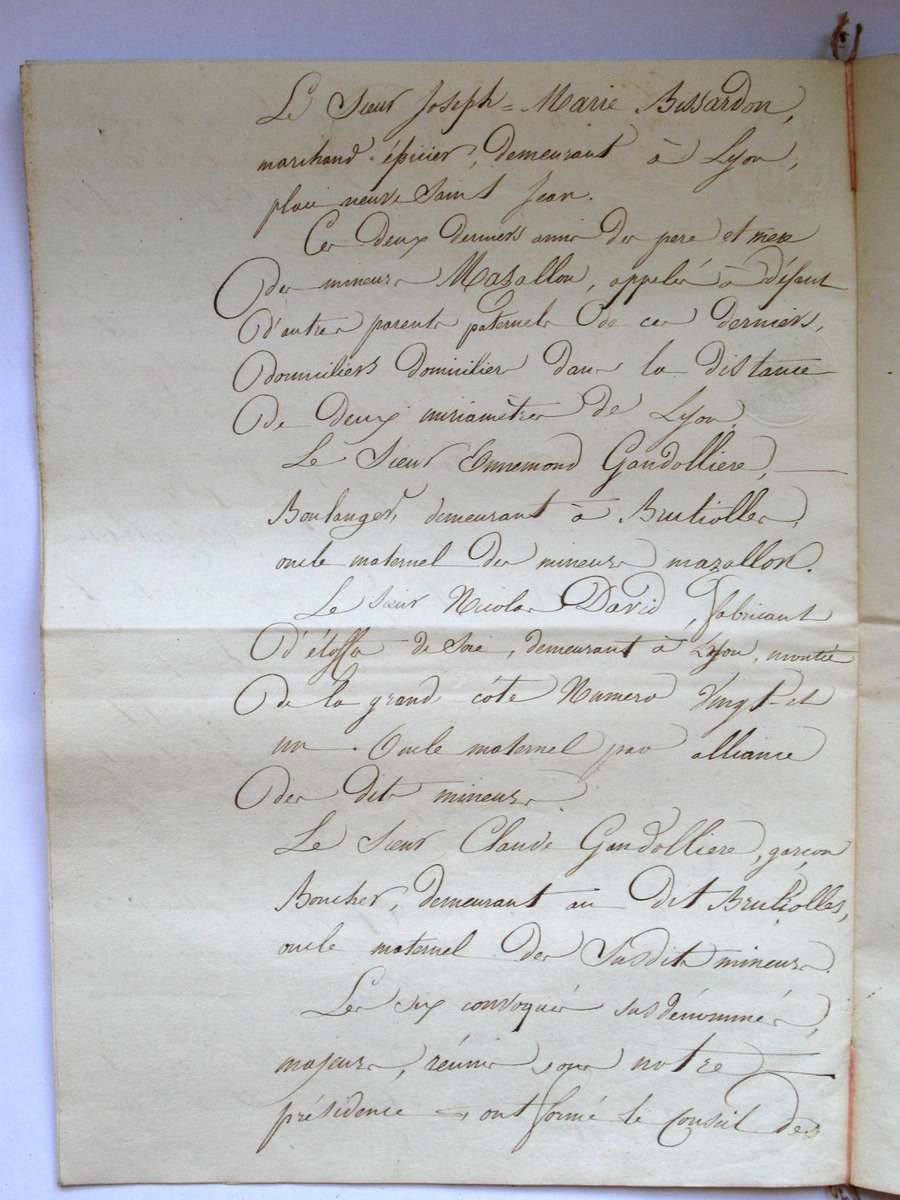 Le Sieur Joseph = Marie Bissardon,
marchand épicier, demeurant à Lyon,
place neuve Saint Jean.
Ces deux derniers amis des pere et mere
des mineurs Mazallon, appelés à défaut
d'autres parents paternels de ces derniers,
domiciliers domiciliés dans la distance
de deux miriamètres de Lyon.
Le Sieur Ennemond Gandolliere,
Boulanger, demeurant à Brulliolles,
oncle maternel des mineurs mazallon.
Le Sieur Nicolas David, fabricant
d'étoffes de soie, demeurant à Lyon, montée
de la grand côte Numero Vingt-et
un. Oncle maternel par alliance
des dits mineurs
Le Sieur Claude Gandolliere, garçon
Boucher, demeurant au dit Brulliolles,
oncle maternel des susdits mineurs.
Les six convoqués susdénommés,
majeurs, réunis sous notre
présidence, ont formé le Conseil des